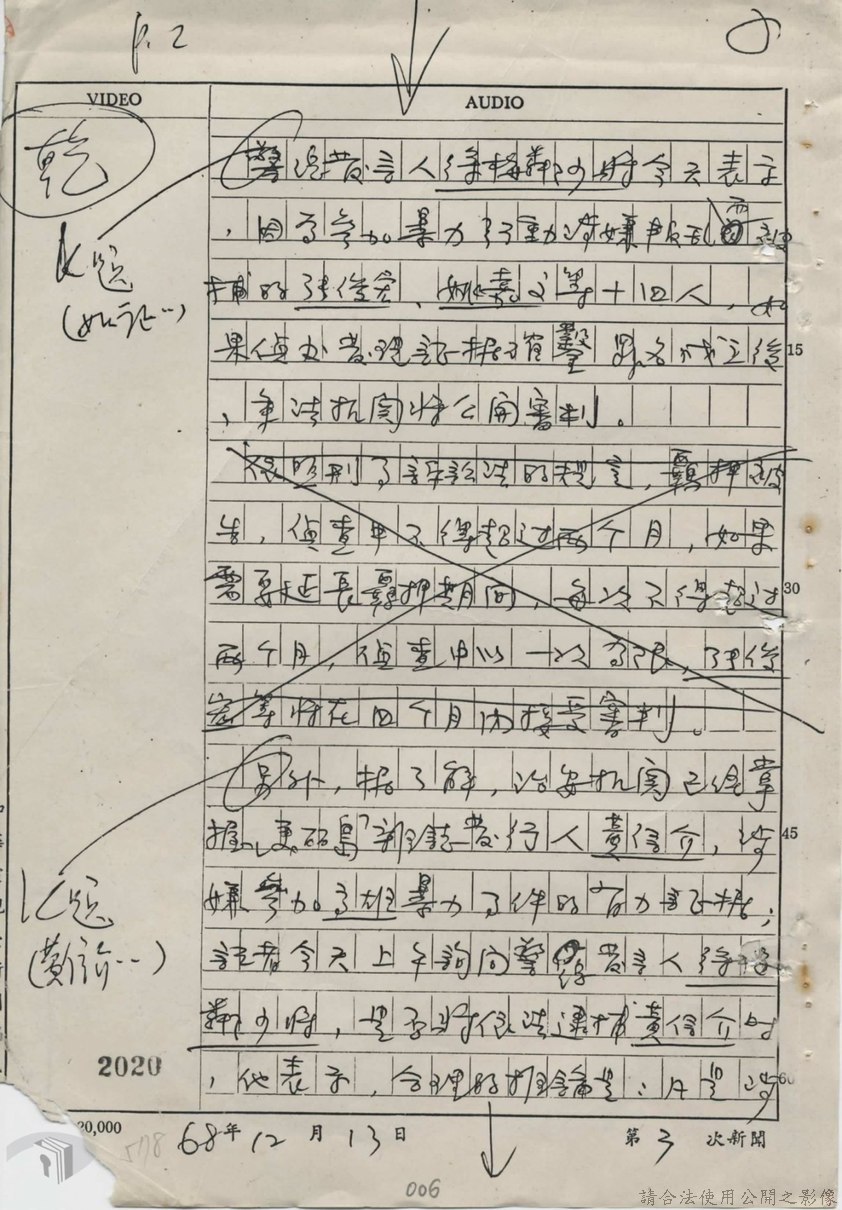 p.2
VIDEO
AUDIO
乾
K題
(如証…)
警總發言人徐梅鄰少將今天表示
,因為參加暴力行動涉嫌叛亂而被
捕的張俊宏、姚嘉文等十四人,如
果偵办發現証据確鑿 罪名成立後
,軍法机関將公開審判。
依照刑事訴訟法的規定,羈押被
告,偵查中不得超过兩个月,如果
需要延長羈押期间,每次不得超过
兩个月,偵查中以一次為限,張俊
宏等將在四个月內接受審判。
另外,据了解,治安机関已經掌
握美麗島雜誌發行人黃信介,涉
嫌參加高雄暴力事件的有力証据;
記者今天上午詢问警總發言人徐梅
鄰少將,是否將依法逮捕黃信介时
,他表示,合理的推論是:凡是涉
15
30
45
60
K題
(黃信介…)
2020
20,000
578
68年12月13日
第3次新聞
006
請合法使用公開之影像